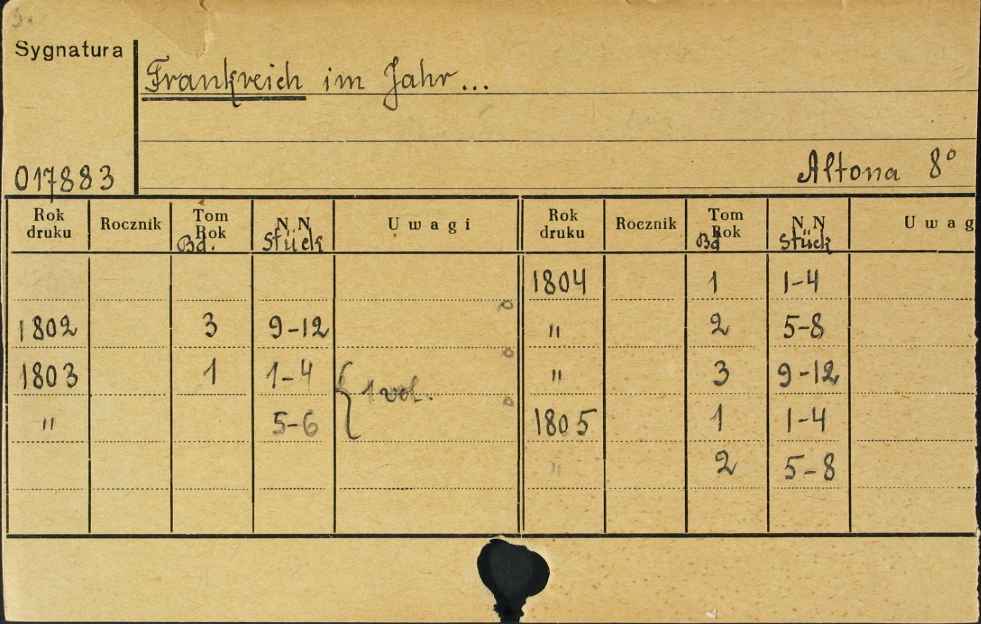 Sygnatura
Frankreich im Jahr...
017883
Altona 8°
Rok druku Rocznik Tom Rok Bd. N.N Stück Uwagi Rok druku Rocznik Tom Rok Bd N.N Stück Uwag
1804 1 1-4
1802 3 9-12 " 2 5-8
1803 1 1-4 { 1 vol. " 3 9-12
" 5-6 1805 1 1-4
" 2 5-8